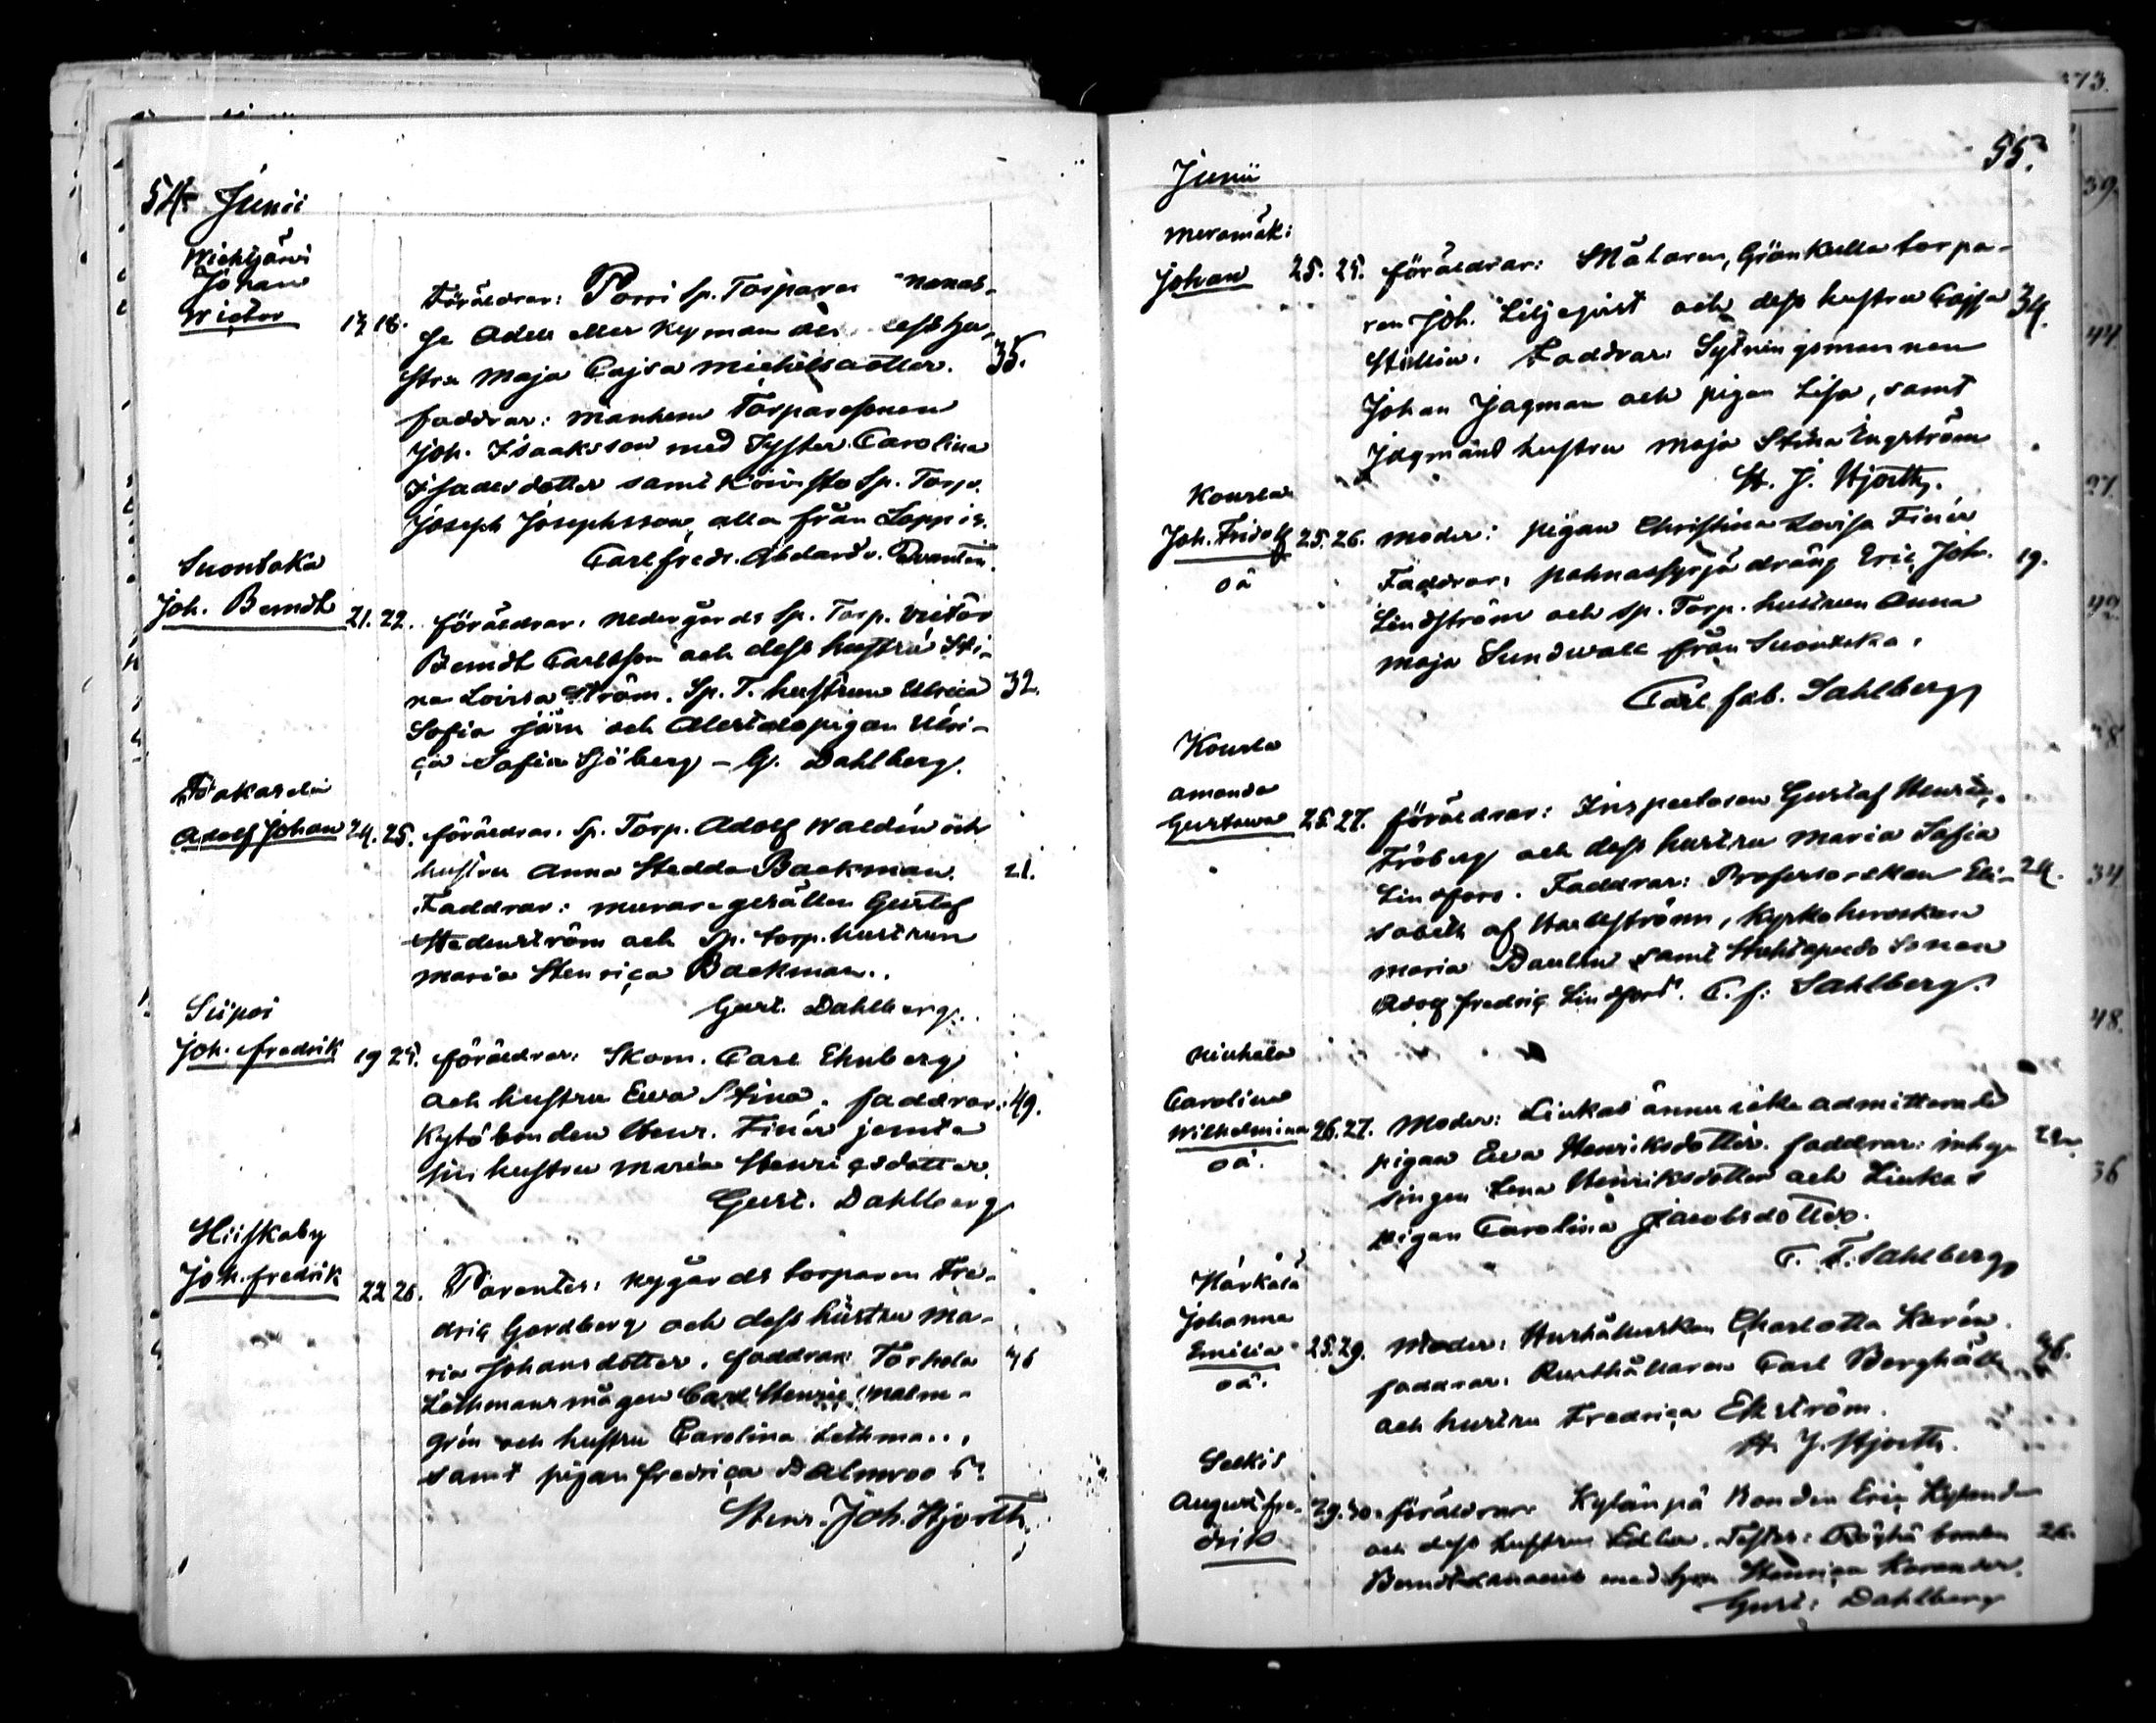 54. Junii
Wichtjärvi
Johan
Wictor 17 18. Föräldrar: Porri sp. Torparen
se Adell eller Nyman
stru Maja Cajsa Michelsdotter. 35.
faddrar: Manhem Torparesonen
Joh. Isaaksson med Syster Carolina
Isacsdotter samt sp. Torp.
Joseph Josephsson, alla från Loppis.
Carl Fredr.
Suontaka
Joh. Berndt 21. 22. föräldrar: Nedergårds sp. Torp. Victor
Berndt Carlsson och dess hustru Sti-
na Lovisa Ström. Sp. T. hustrun Ulrica 32.
Sofia Järn och pigan Ulri-
ca Sofia Sjöberg – G. Dahlberg.
Adolf Johan 24. 25. föräldrar: Sp. Torp. Adolf Waldén och
hustru Anna Hedda Backman. 21.
Faddrar: muraregesällen Gustaf
Hedenström och Sp. torp. hustrun
Maria Henrica Backman.
Gust. Dahlberg.
Siipoi
Joh. Fredrik 19 25. föräldrar: Skom. Carl Ehnberg
och hustru Ewa Stina. faddrar: 49.
Kytöbonden Henr. Finér jemte
sin hustru Maria Henricsdotter.
Gust. Dahlberg
Hiiskaby
Joh. fredrik 22 26. Parentes: Nygårds torparen Fre-
dric Gordberg och dess hustru Ma-
ria Johansdotter. faddrar: Torhola 46
Lethmans mågen Carl Henric Malm-
grén och hustru Carolina Lethma..,
samt pigan Fredrica Dalmroo s?
Henr. Joh. Hjorth.
55.
Junii
Meramäk:
Johan 25. 25. föräldrar: Målaren, Grönkulla torpa-
ren Joh. Liljeqvist och dess hustru Cajsa 34.
Stillin. Faddrar: Sytningsmannen
Johan Jagman och pigan Lisa, samt
Jagmans hustru Maja Stina Engström
H. J. Hjorth.
Kourla
Joh. Fridolf 25. 26. Moder: pigan Christina Lovisa Finér
oä Faddrar: dräng Eric Joh. 19.
Lindström och sp. Torp. hustrun Anna
Maja Sundwall från Suontaka.
Carl Fab. Sahlberg
Kourla
Amanda
Gustava 25. 27. föräldrar: Inspectoren Gustaf Henric
Fröberg och dess hustru Maria Sofia
Lindfors. Faddrar: Professorskan Eli- 24.
sabeth af Hællström, Kyrkoherrskan
Maria Paulin samt sonen
Adolf Fredric Lindfors. C. f: Sahlberg.
Niuhala
Carolina
Wilhelmina 26. 27. Moder: Liukas ännu icke admitterade
oä. pigan Ewa Henriksdotter. faddrar: inhy-
singen Lena Henriksdotter och Liukas
pigan Carolina Jacobsdotter.
C. F. Sahlberg
Härkälä
Johanna
Emilia 25. 29. Moder: Hushållerskan Charlotta Kærén.
oä. faddrar: Rusthållaren Carl Berghäll 36.
och hustru Fredrica Ekström.
H. J. Hjorth.
Selkis
August fre- 29. 30. föräldrar: Kylänpä Bonden Eric Kylander
drik och dess hustru Edla. Testes: bonden 26.
Berndt med hu Henrica Karander.
Gust: Dahlberg